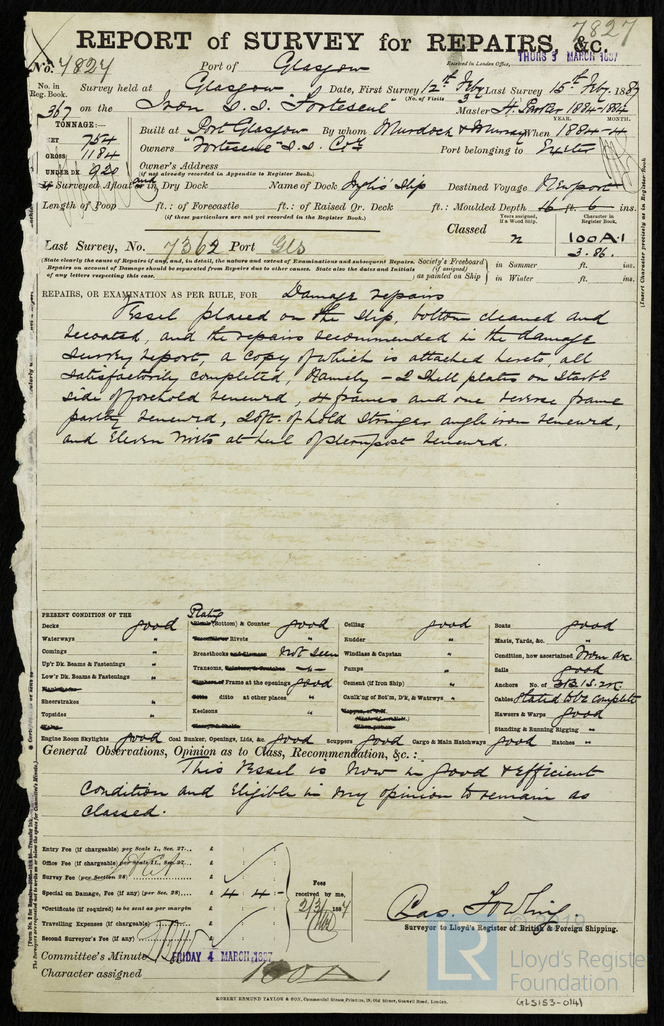 7827
REPORT of SURVEY for REPAIRS, &c.
No. 7827 Port of Glasgow Received in London Office, THURS 3 MARCH 1887
No. in Reg. Book. Survey held at Glasgow Date, First Survey 12th Feby Last Survey 15th Feby. 1887
(No. of Visits 3)
367 on the Iron S.S. "Fortescue" Master H. Parker
TONNAGE:— YEAR. MONTH.
NET 754 Built at Port Glasgow By whom Murdoch & Murray When 1884-4
GROSS 1184 Owners "Fortescue" S.S. Coy Port belonging to Exeter
UNDER DK. 920 Owner's Address
(if not already recorded in Appendix to Register Book.)
Surveyed Afloat and in Dry Dock Name of Dock Slip Destined Voyage Newport
Length of Poop ft.: of Forecastle ft.: of Raised Qr. Deck ft.: Moulded Depth 16 ft. 6 ins.
(if these particulars are not yet recorded in the Register Book.)
Years assigned, if a Wood Ship. Character in Register Book.
Classed 100A1
Last Survey, No. 7362 Port Gls 3.86.
(State clearly the cause of Repairs if any, and, in detail, the nature and extent of Examinations and subsequent Repairs.
Repairs on account of Damage should be separated from Repairs due to other causes. State also the dates and Initials of any letters respecting this case.
Society's Freeboard (if assigned) as painted on Ship
in Summer ft. ins.
in Winter ft. ins.
(Insert Character precisely as in Register Book.)
REPAIRS, OR EXAMINATION AS PER RULE, FOR Damage repairs
Vessel placed on the slip, bottom cleaned and
recoated, and the repairs recommended in the damage
survey report, a copy of which is attached hereto, all
satisfactorily completed, Namely - 2 Shell plates on Starbd
side of forehold renewed, 4 frames and one reverse frame
partly renewed, 20ft. of hold Stringer angle iron renewed,
and Eleven rivets at heel of sternpost renewed.
PRESENT CONDITION OF THE
Decks good
Waterways "
Comings "
Up'r Dk. Beams & Fastenings "
Low'r Dk. Beams & Fastenings "
Sheerstrakes "
Topsides "
Plating (Bottom) & Counter good
Rivets "
Breasthooks not seen
Transoms,
of Frame at the openings good
ditto at other places "
Keelsons "
Ceiling good
Rudder "
Windlass & Capstan "
Pumps "
Cement (if Iron Ship) "
Caulk'ng of Bot'm, D'k, & Watrwys "
Boats good
Masts, Yards, &c. "
Condition, how ascertained From dk.
Sails good
Anchors No. of 3B. 1S. 2K
Cables Stated to be complete
Hawsers & Warps good
Standing & Running Rigging "
Engine Room Skylights good Coal Bunker, Openings, Lids, &c. good Scuppers good Cargo & Main Hatchways good Hatches "
General Observations, Opinion as to Class, Recommendation, &c.:
This Vessel is now in good & efficient
Condition and Eligible in my opinion to remain as
Classed.
Entry Fee (if chargeable) per Scale I., Sec. 27... £
Office Fee (if chargeable) per Scale II., Sec. 27... £
Survey Fee (per Section 28) £
Special on Damage, Fee (if any) (per Sec. 28) £ 4 : 4 : -
*Certificate (if required) to be sent as per margin
Travelling Expenses (if chargeable) £
Second Surveyor's Fee (if any) £
Fees received by me, 2/3/1887
Surveyor to Lloyd's Register of British & Foreign Shipping.
Committee's Minute FRIDAY 4 MARCH 1887
Character assigned 100A1
ROBERT EDMUND TAYLOR & SON, Commercial Steam Printers, 19, Old Street, Goswell Road, London.
© 2019
LR
Lloyd's Register
Foundation
GLS153-0141